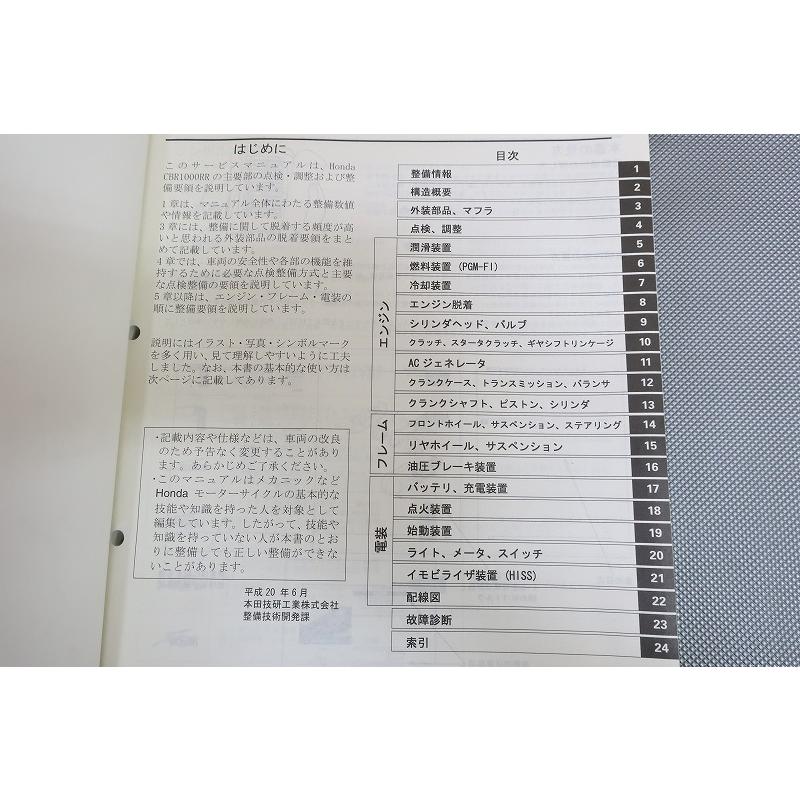 はじめに
このサービスマニュアルは、Honda
CBR1000RRの主要部の点検・調整および整
備要領を説明しています。
1章は、マニュアル全体にわたる整備数値
や情報を記載しています。
3章には、整備に関して脱着する頻度が高
いと思われる外装部品の脱着要領をまと
めて記載しています。
4章では、車両の安全性や各部の機能を維
持するために必要な点検整備方式と主要
な点検整備の要領を説明しています。
5章以降は、エンジン・フレーム・電装の
順に整備要領を説明しています。
説明にはイラスト・写真・シンボルマーク
を多く用い、見て理解しやすいように工夫
しました。なお、本書の基本的な使い方は
次ページに記載してあります。
・記載内容や仕様などは、車両の改良
のため予告なく変更することがあり
ます。あらかじめご了承ください。
・このマニュアルはメカニックなど
Honda モーターサイクルの基本的な
技能や知識を持った人を対象として
編集しています。したがって、技能や
知識を持っていない人が本書のとお
りに整備しても正しい整備ができな
いことがあります。
平成20年6月
本田技研工業株式会社
整備技術開発課
目次
整備情報 1
構造概要 2
外装部品、マフラ 3
点検、調整 4
エンジン
潤滑装置 5
燃料装置 (PGM-FI) 6
冷却装置 7
エンジン脱着 8
シリンダヘッド、バルブ 9
クラッチ、スタータクラッチ、ギヤシフトリンケージ 10
ACジェネレータ 11
クランクケース、トランスミッション、バランサ 12
クランクシャフト、ピストン、シリンダ 13
フレーム
フロントホイール、サスペンション、ステアリング 14
リヤホイール、サスペンション 15
油圧ブレーキ装置 16
電装
バッテリ、充電装置 17
点火装置 18
始動装置 19
ライト、メータ、スイッチ 20
イモビライザ装置 (HISS) 21
配線図 22
故障診断 23
索引 24